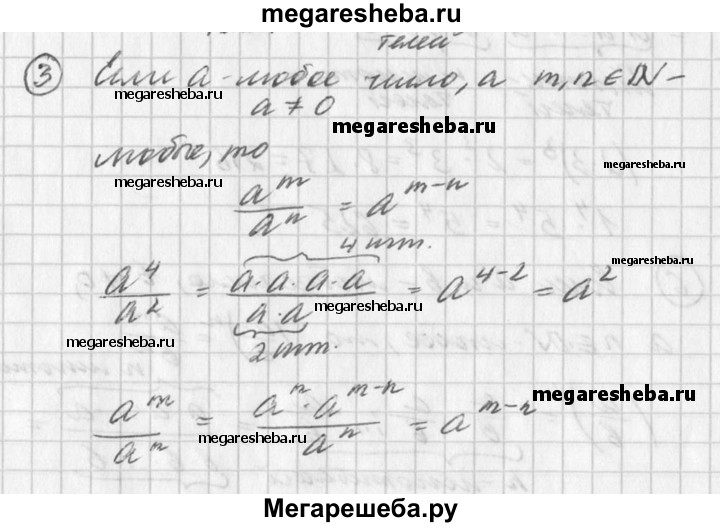 megaresheba.ru
телей
③ Если a - любое число, а m, n ∈ N -
a ≠ 0
megaresheba.ru
megaresheba.ru
любые, то
megaresheba.ru
megaresheba.ru
a^m / a^n = a^(m-n)
4 шт.
a^4 / a^2 = a·a·a·a / a·a = a^(4-2) = a^2
megaresheba.ru
megaresheba.ru
megaresheba.ru
2 шт.
a^m / a^n = a^n · a^(m-n) / a^n = a^(m-n)
megaresheba.ru
megaresheba.ru
Мегарешеба.ру